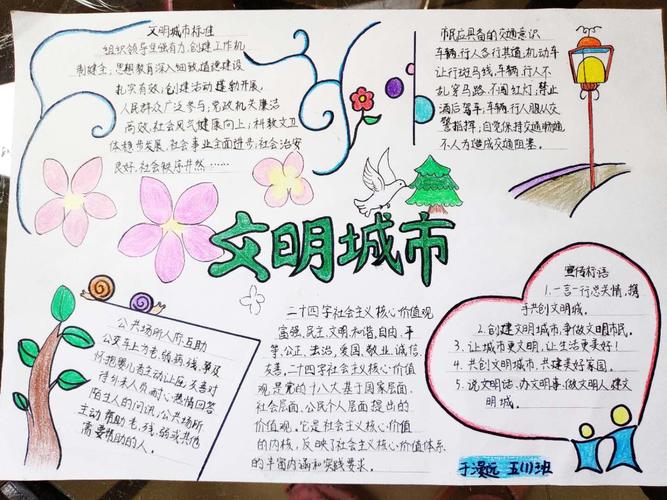 文明城市标准
组织领导坚强有力，创建工作机
制健全；思想教育深入细致，道德建设
扎实有效；创建活动蓬勃开展，
人民群众广泛参与；党政机关廉洁
高效，社会风气健康向上；科教文卫
体稳步发展，社会事业全面进步；社会治安
良好，社会秩序井然……
市民应具备的交通意识
车辆、行人各行其道，机动车
让行斑马线，车辆、行人不
乱穿马路，不闯红灯，禁止
酒后驾车，车辆、行人服从交
警指挥，自觉保持交通畅通，
不人为造成交通阻塞。
文明城市
公共场所人际互助
公交车上为老、弱、病、残、孕及
怀抱婴儿者主动让座，友善对
待外来人员，耐心热情回答
陌生人的问讯，公共场所
主动帮助老、残、弱或其他
需要帮助的人。
二十四字社会主义核心价值观
富强、民主、文明、和谐、自由、平
等、公正、法治、爱国、敬业、诚信、
友善，二十四字社会主义核心价值
观，是党的十八大基于国家层面、
社会层面、公民个人层面提出的
价值观。它是社会主义核心价值
的内核，反映了社会主义核心价值体系
的丰富内涵和实践要求。
宣传标语
1. 一言一行总关情，携
手共创文明城。
2. 创建文明城市，争做文明市民。
3. 让城市更文明，让生活更美好！
4. 共创文明城市，共建美好家园。
5. 说文明话、办文明事、做文明人、建文
明城。
于漫远 五(1)班